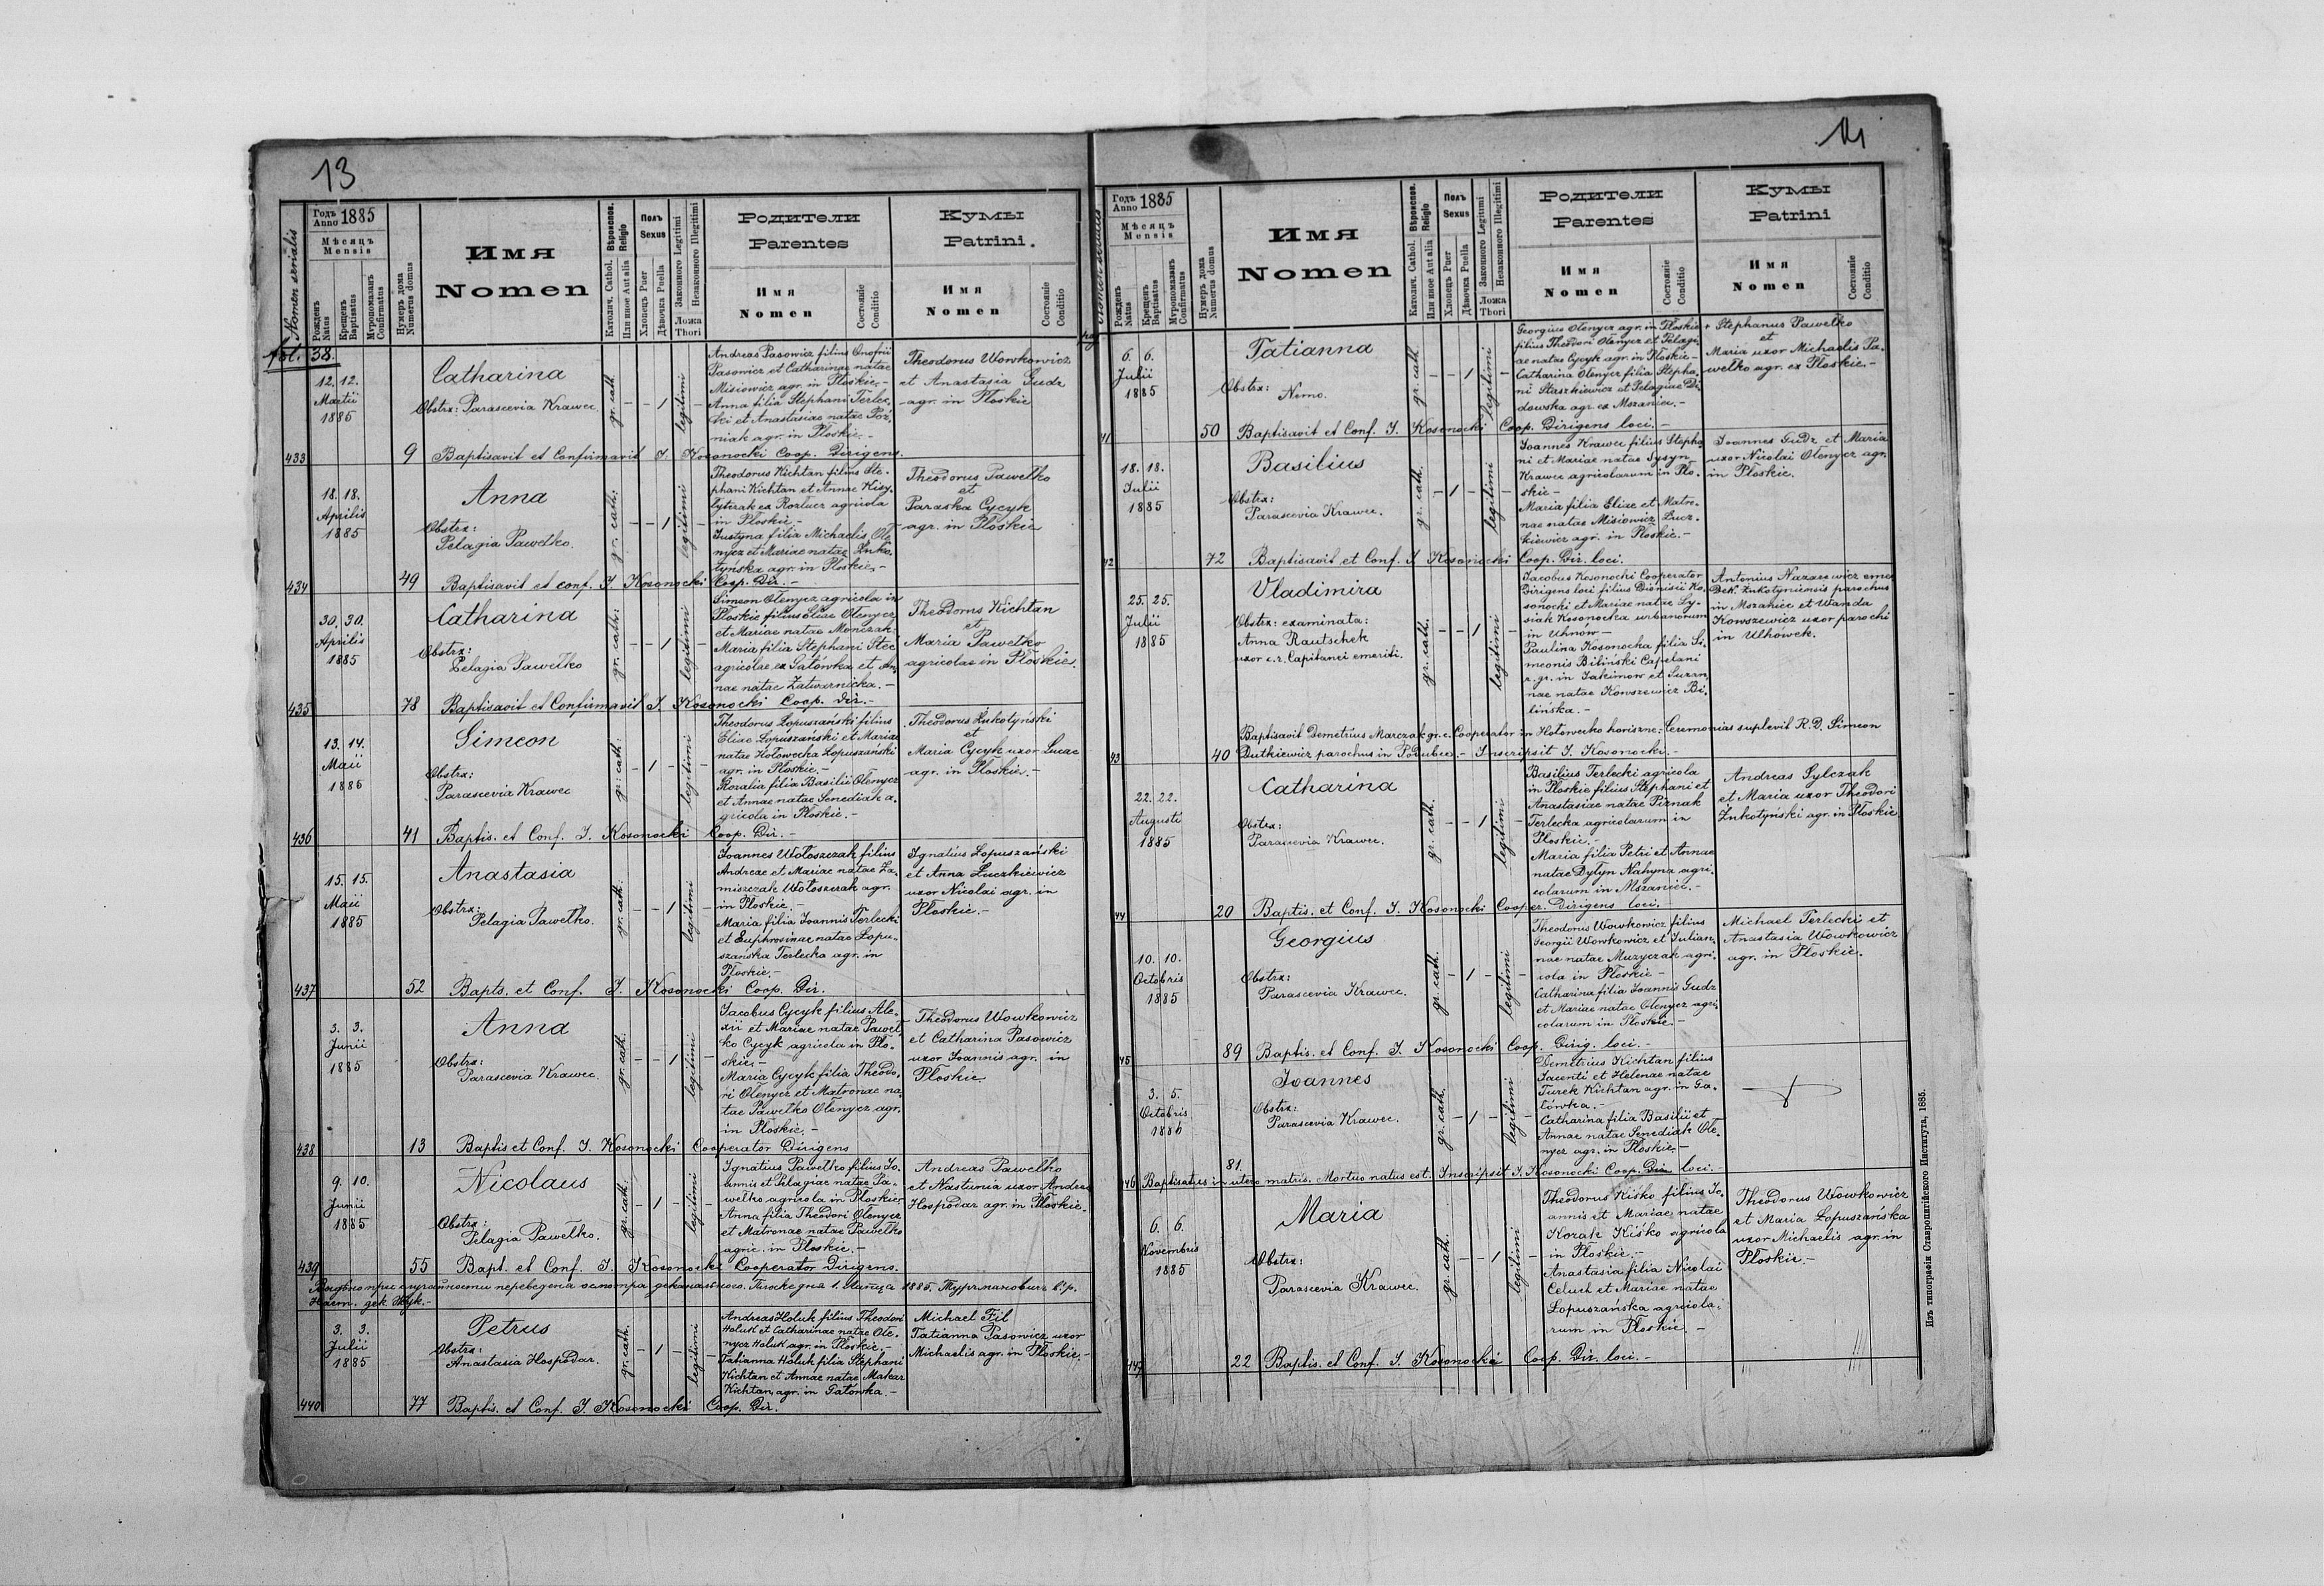 13
Nomen serialis
Годъ Anno 1885
Мѣсяцъ
Mensis
Рожденъ Natus
Крещенъ Baptisatus
Мѵропомазанъ Confirmatus
Нумеръ дома
Numerus domus
Имя
Nomen
Вѣроисповѣд.
Religio
Католич. Cathol.
Или иное Aut alia
Полъ
Sexus
Хлопецъ Puer
Дѣвочка Puella
Законного Legitimi
Незаконного Illegitimi
Ложа
Thori
Родители
Parentes
Имя
Nomen
Состоянiе
Conditio
Кумы
Patrini.
Имя
Nomen
Состоянiе
Conditio
fol. 38.
12. 12.
Martii
1885
433
9
Catharina
Obstrx: Parascevia Krawec
gr. cath.
- - 1
legitimi
Andreas Pasowicz filius Onofrii
Pasowicz et Catharinae natae
Misiowicz agr. in Płoskie.-
Anna filia Stephani Terlec-
ki et Anastasiae natae Poź-
niak agr. in Płoskie.-
Theodorus Wowkowicz
et Anastasia Gudz
agr. in Płoskie
Baptisavit et Confirmavit J. Kosonocki Coop. Dirigens.
18. 18.
Aprilis
1885
434
49
Anna
Obstrx:
Pelagia Pawełko.
gr. cath.
- - 1
legitimi
Theodorus Kichtan filius Ste-
phani Kichtan et Annae Kisy-
lyczak ex Rozłucz agricola
in Płoskie -
Justyna filia Michaelis Ole-
nycz et Mariae natae Żuko-
tyńska agr. in Płoskie.-
Theodorus Pawełko
et
Paraska Cycyk
agr. in Płoskie
Baptisavit et conf. J. Kosonocki Coop. Dir.-
30. 30.
Aprilis
1885
435
78
Catharina
Obstrx:
Pelagia Pawełko
gr. cath.
- - 1
legitimi
Simeon Olenycz agricola in
Płoskie filius Eliae Olenycz
et Mariae natae Monczak.
Maria filia Stephani Stec
agricolae ex Gałówka et An-
nae natae Zatwarnicka.-
Theodorus Kichtan
et
Maria Pawełko
agricolae in Płoskie.
Baptisavit et Confirmavit J. Kosonocki Coop. Dir.-
13. 14.
Maii
1885
436
41
Simeon
Obstrx:
Parascevia Krawec
gr. cath.
- 1 -
legitimi
Theodorus Łopuszański filius
Eliae Łopuszański et Mariae
natae Hołowecka Łopuszański
agr. in Płoskie.-
Rozalia filia Basilii Olenycz
et Annae natae Senediak a-
gricola in Płoskie.-
Theodorus Żukotyński
et
Maria Cycyk uxor Lucae
agr. in Płoskie.-
Baptis. et Conf. J. Kosonocki Coop. Dir.-
15. 15.
Maii
1885
437
52
Anastasia
Obstrx:
Pelagia Pawełko.
gr. cath.
- - 1
legitimi
Joannes Wołoszczak filius
Andreae et Mariae natae Za-
miszczak Wołoszczak agr.
in Płoskie.-
Maria filia Joannis Terlecki
et Euphrosinae natae Łopu-
szańska Terlecka agr. in
Płoskie.-
Ignatius Łopuszański
et Anna Łuczkiewicz
uxor Nicolai agr. in
Płoskie.-
Bapts. et Conf. J. Kosonocki Coop. Dir.
3. 3.
Junii
1885
438
13
Anna
Obstrx:
Parascevia Krawec.
gr. cath.
- - 1
legitimi
Jacobus Cycyk filius Ale-
xii et Mariae natae Paweł-
ko Cycyk agricola in Pło-
skie.-
Maria Cycyk filia Theodo-
ri Olenycz et Matronae na-
tae Pawełko Olenycz agr.
in Płoskie.-
Theodorus Wowkowicz
et Catharina Pasowicz
uxor Joannis agr. in
Płoskie.
Baptis et Conf. J. Kosonocki Cooperator Dirigens
9. 10.
Junii
1885
439
55
Nicolaus
Obstrx:
Pelagia Pawełko.
gr. cath.
- 1 -
legitimi
Ignatius Pawełko filius Jo-
annis et Pelagiae natae Pa-
wełko agricola in Płoskie.
Anna filia Theodori Olenycz
et Matronae natae Pawełko
agric. in Płoskie.-
Andreas Pawełko
et Nastunia uxor Andreae
Hospodar agr. in Płoskie.
Bapt. et Conf. J. Kosonocki Cooperator Dirigens.
3. 3.
Julii
1885
440
77
Petrus
Obstrx:
Anastasia Hospodar.
gr. cath.
- 1 -
legitimi
Andreas Holuk filius Theodori
Holuk et Catharinae natae Ole-
nycz Holuk agr. in Płoskie.-
Tatianna Holuk filia Stephani
Kichtan et Annae natae Makar
Kichtan, agr. in Gałówka.-
Michael Fil
Tatianna Pasowicz uxor
Michaelis agr. in Płoskie.-
Baptis. et Conf. J. Kosonocki Coop. Dir.
Годъ Anno 1885
Мѣсяцъ
Mensis
Рожденъ Natus
Крещенъ Baptisatus
Мѵропомазанъ Confirmatus
Нумеръ дома
Numerus domus
Имя
Nomen
Вѣроисповѣд.
Religio
Католич. Cathol.
Или иное Aut alia
Полъ
Sexus
Хлопецъ Puer
Дѣвочка Puella
Законного Legitimi
Незаконного Illegitimi
Ложа
Thori
Родители
Parentes
Имя
Nomen
Состоянiе
Conditio
Кумы
Patrini
Имя
Nomen
Состоянiе
Conditio
6. 6.
Julii
1885
41
50
Tatianna
Obstrx:
Nemo.
gr. cath.
- - 1
legitimi
Georgius Olenycz agr. in Płoskie
filius Theodori Olenycz et Pelagi-
ae natae Cycyk agr. in Płoskie.-
Catharina Olenycz filia Stepha-
ni Staszkiewicz et Pelagiae Di-
dowska agr. ex Mszaniec.-
Stephanus Pawełko
et
Maria uxor Michaelis Pa-
wełko agr. ex Płoskie.-
Baptisavit et Conf. J. Kosonocki Coop. Dirigens loci.-
18. 18.
Julii
1885
42
72
Basilius
Obstrx:
Parascevia Krawec.
gr. cath.
- 1 -
legitimi
Joannes Krawec filius Stepha-
ni et Mariae natae Sysyn
Krawec agricolarum in Pło-
skie -
Maria filia Eliae et Matro-
nae natae Misiowicz Łucz-
kiewicz agr. in Płoskie.-
Joannes Gudz et Maria
uxor Nicolai Olenycz agr.
in Płoskie.
Baptisavit et Conf. J. Kosonocki Coop. Dir. loci.
25. 25.
Julii
1885
43
40
Vladimira
Obstrx: examinata:
Anna Rautschek
uxor c.r. Capitanei emeriti.
gr. cath.
- - 1
legitimi
Jacobus Kosonocki Cooperator
Dirigens loci filius Dionisii Ko-
sonocki et Mariae natae Sy-
siak Kosonocka urbanorum
in Uhnów -
Paulina Kosonocka filia Si-
meonis Biliński Capelani
r. gr. in Jakimow et Suzan-
nae natae Kowszewicz Bi-
lińska.-
Antonius Nazarewicz emer.
Dek. Żukotyniensis parochus
in Mszaniec et Wanda
Kowszewicz uxor parochi
in Ulhówek.
Baptisavit Demetrius Marczak gr. c. Cooperator in Hołowecko horiszne. Ceremonias suplevit R.D. Simeon
Dutkiewicz parochus in - Inscripsit J. Kosonocki.-
22. 22.
Augusti
1885
44
20
Catharina
Obstrx:
Parascevia Krawec.
gr. cath.
- - 1
legitimi
Basilius Terlecki agricola
in Płoskie filius Stephani et
Anastasiae natae Piznak
Terlecka agricolarum in
Płoskie.-
Maria filia Petri et Annae
natae Dytyn Nahyna agri-
colarum in Mszaniec.-
Andreas Sylczak
et Maria uxor Theodori
Żukotyński agr. in Płoskie
Baptis. et Conf. J. Kosonocki Cooper. Dirigens loci.
10. 10.
Octobris
1885
45
89
Georgius
Obstrx:
Parascevia Krawec.
gr. cath.
- 1 -
legitimi
Theodorus Wowkowicz filius
Georgii Wowkowicz et Julian-
nae natae Muzyczak agri-
cola in Płoskie -
Catharina filia Joannis Gudz
et Mariae natae Olenycz agri-
colarum in Płoskie.-
Michael Terlecki et
Anastasia Wowkowicz
agr. in Płoskie.
Baptis. et Conf. J. Kosonocki Coop. Dirig. loci.-
3. 5.
Octobris
1886
446
81.
Joannes
Obstrx:
Parascevia Krawec.
gr. cath.
- 1 -
legitimi
Demetrius Kichtan filius
Jacenti et Helenae natae
Turek Kichtan agr. in Ga-
łówka.-
Catharina filia Basilii et
Annae natae Senediak Ole-
nycz agr. in Płoskie.-
Baptisatus in utero matris. Mortuo natus est. Inscripsit J. Kosonocki Coop. Dir. loci.-
6. 6.
Novembris
1885
447
22
Maria
Obstrx:
Parascevia Krawec.
gr. cath.
- - 1
legitimi
Theodorus Kiśko filius Jo-
annis et Mariae natae
Kozak Kiśko agricola
in Płoskie.-
Anastasia filia Nicolai
et Mariae natae
Łopuszańska agricola-
rum in Płoskie.-
Theodorus Wowkowicz
et Maria Łopuszańska
uxor Michaelis agr. in
Płoskie.-
Baptis. et Conf. J. Kosonocki Coop. Dir. loci.-
Изъ типографiи Ставропигiйского Института, 1885.